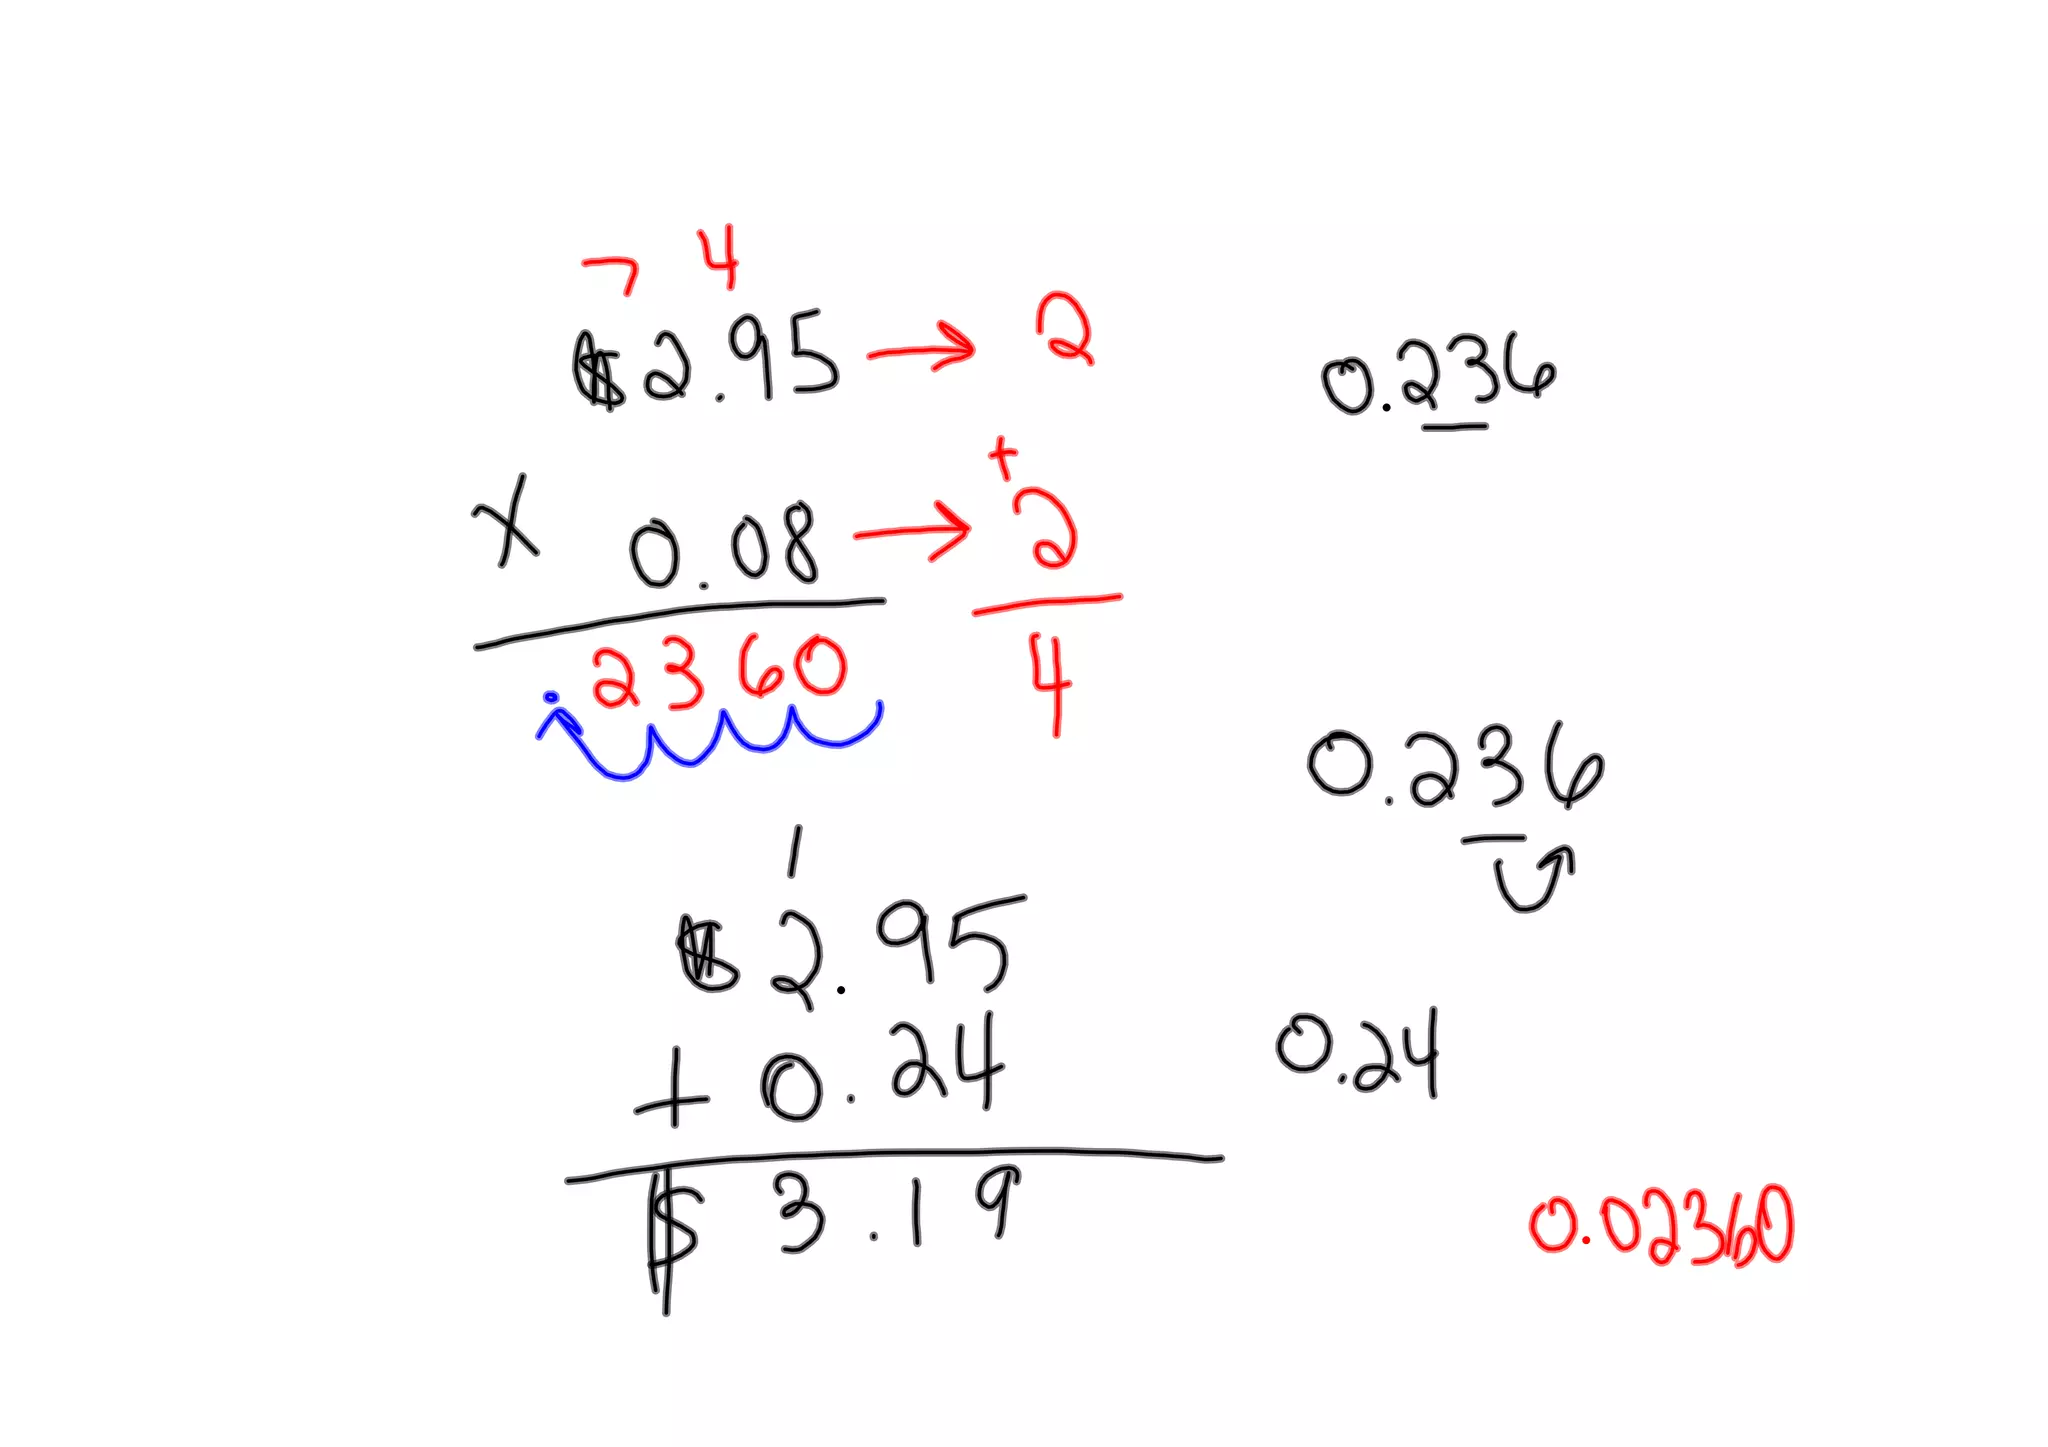 7 4
$2.95 → 2
x 0.08 → + 2
.2360 4
1
$2.95
+ 0.24
$3.19
0.236
0.236
0.24
0.02360